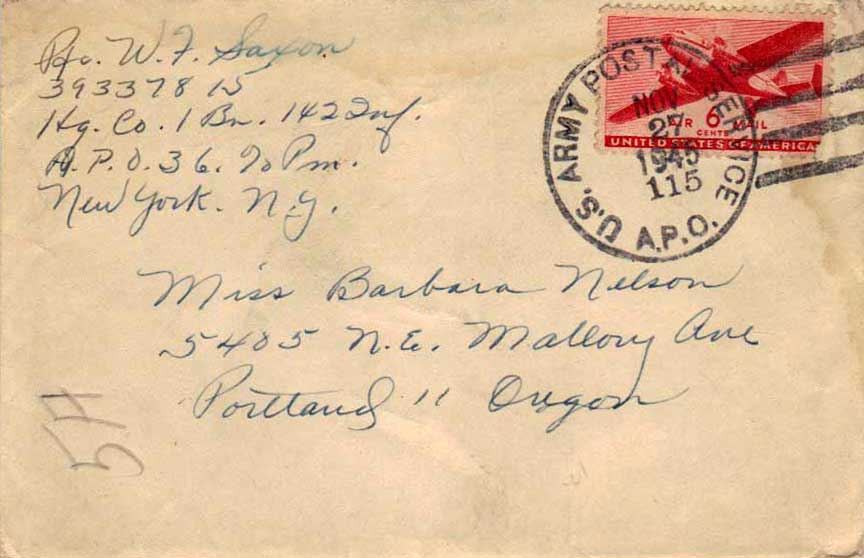 Pfc. W. F. Saxon
39337815
Hq. Co. 1 Bn. 142 Inf.
A.P.O. 36. % Pm.
New York. N.Y.
U.S. ARMY POSTAL SERVICE
NOV
27
1945
115
A.P.O.
AIR 6 MAIL
CENTS
UNITED STATES OF AMERICA
Miss Barbara Nelson
5405 N.E. Mallory Ave
Portland 11 Oregon
54